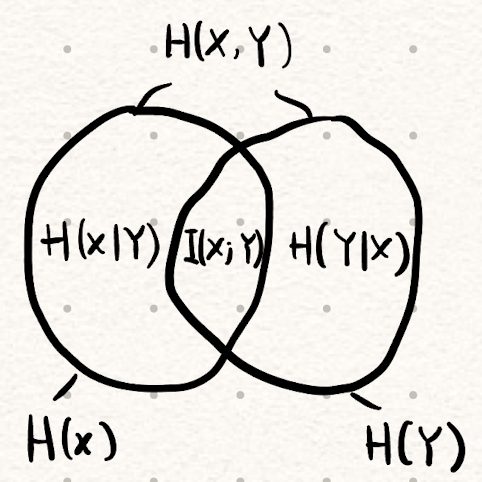 H(X,Y)
H(X|Y) I(X;Y) H(Y|X)
H(X) H(Y)